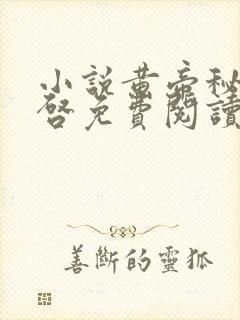 小說黃帝秘
啓免費閱讀
善斷的靈狐